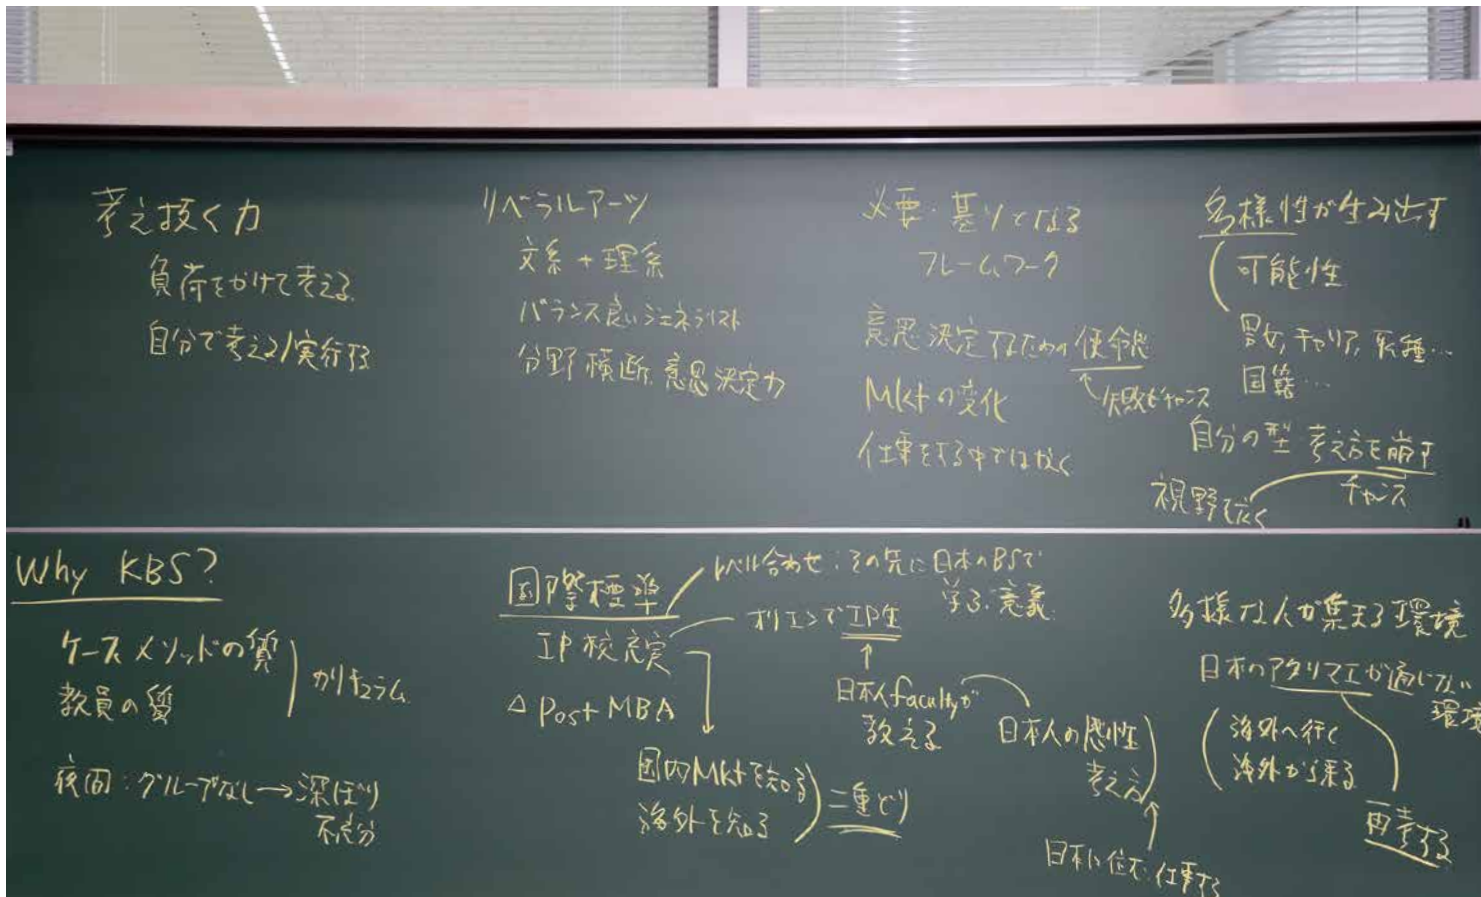 考え抜く力
負荷をかけて考える
自分で考える/実行する
リベラルアーツ
文系+理系
バランス良いジェネラリスト
分野横断、意思決定力
必要・基りとなる
フレームワーク
意思決定するための使命感
失敗もチャンス
Mktの変化
仕事をする中ではなく
多様性が生み出す
可能性
男女、キャリア、職種…
国籍…
自分の型 考え方を崩す
チャンス
視野を広く
Why KBS?
ケースメソッドの質
教員の質
カリキュラム
夜間:グループなし→深ぼり
不充分
国際標準
レベル合わせ:その先に日本のBSで
学ぶ意義
IP校充実
オリエンでIP生
△ Post MBA
日本人facultyが
教える
国内Mktを知る
海外を知る
二重どり
日本人の感性
考え方
日本に住む、仕事する
多様な人が集まる環境
日本のアタリマエが通じない
環境
海外へ行く
海外から来る
再考する